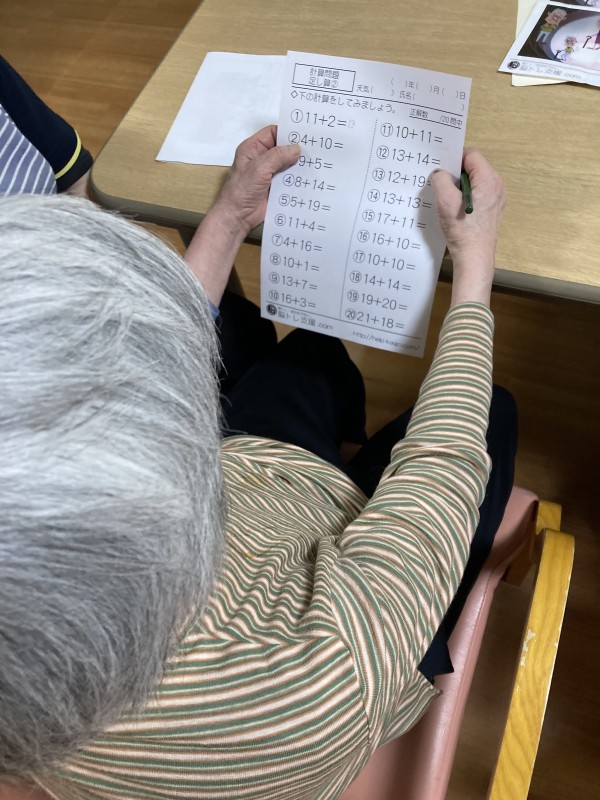 計算問題
足し算②
(　)年(　)月(　)日
天気(　) 氏名(　)
◇下の計算をしてみましょう。
正解数　/20問中
①11+2=
②4+10=
9+5=
④8+14=
⑤5+19=
⑥11+4=
⑦4+16=
⑧10+1=
⑨13+7=
⑩16+3=
⑪10+11=
⑫13+14=
⑬12+19=
⑭13+13=
⑮17+11=
⑯16+10=
⑰10+10=
⑱14+14=
⑲19+20=
⑳21+18=
脳トレ支援.com